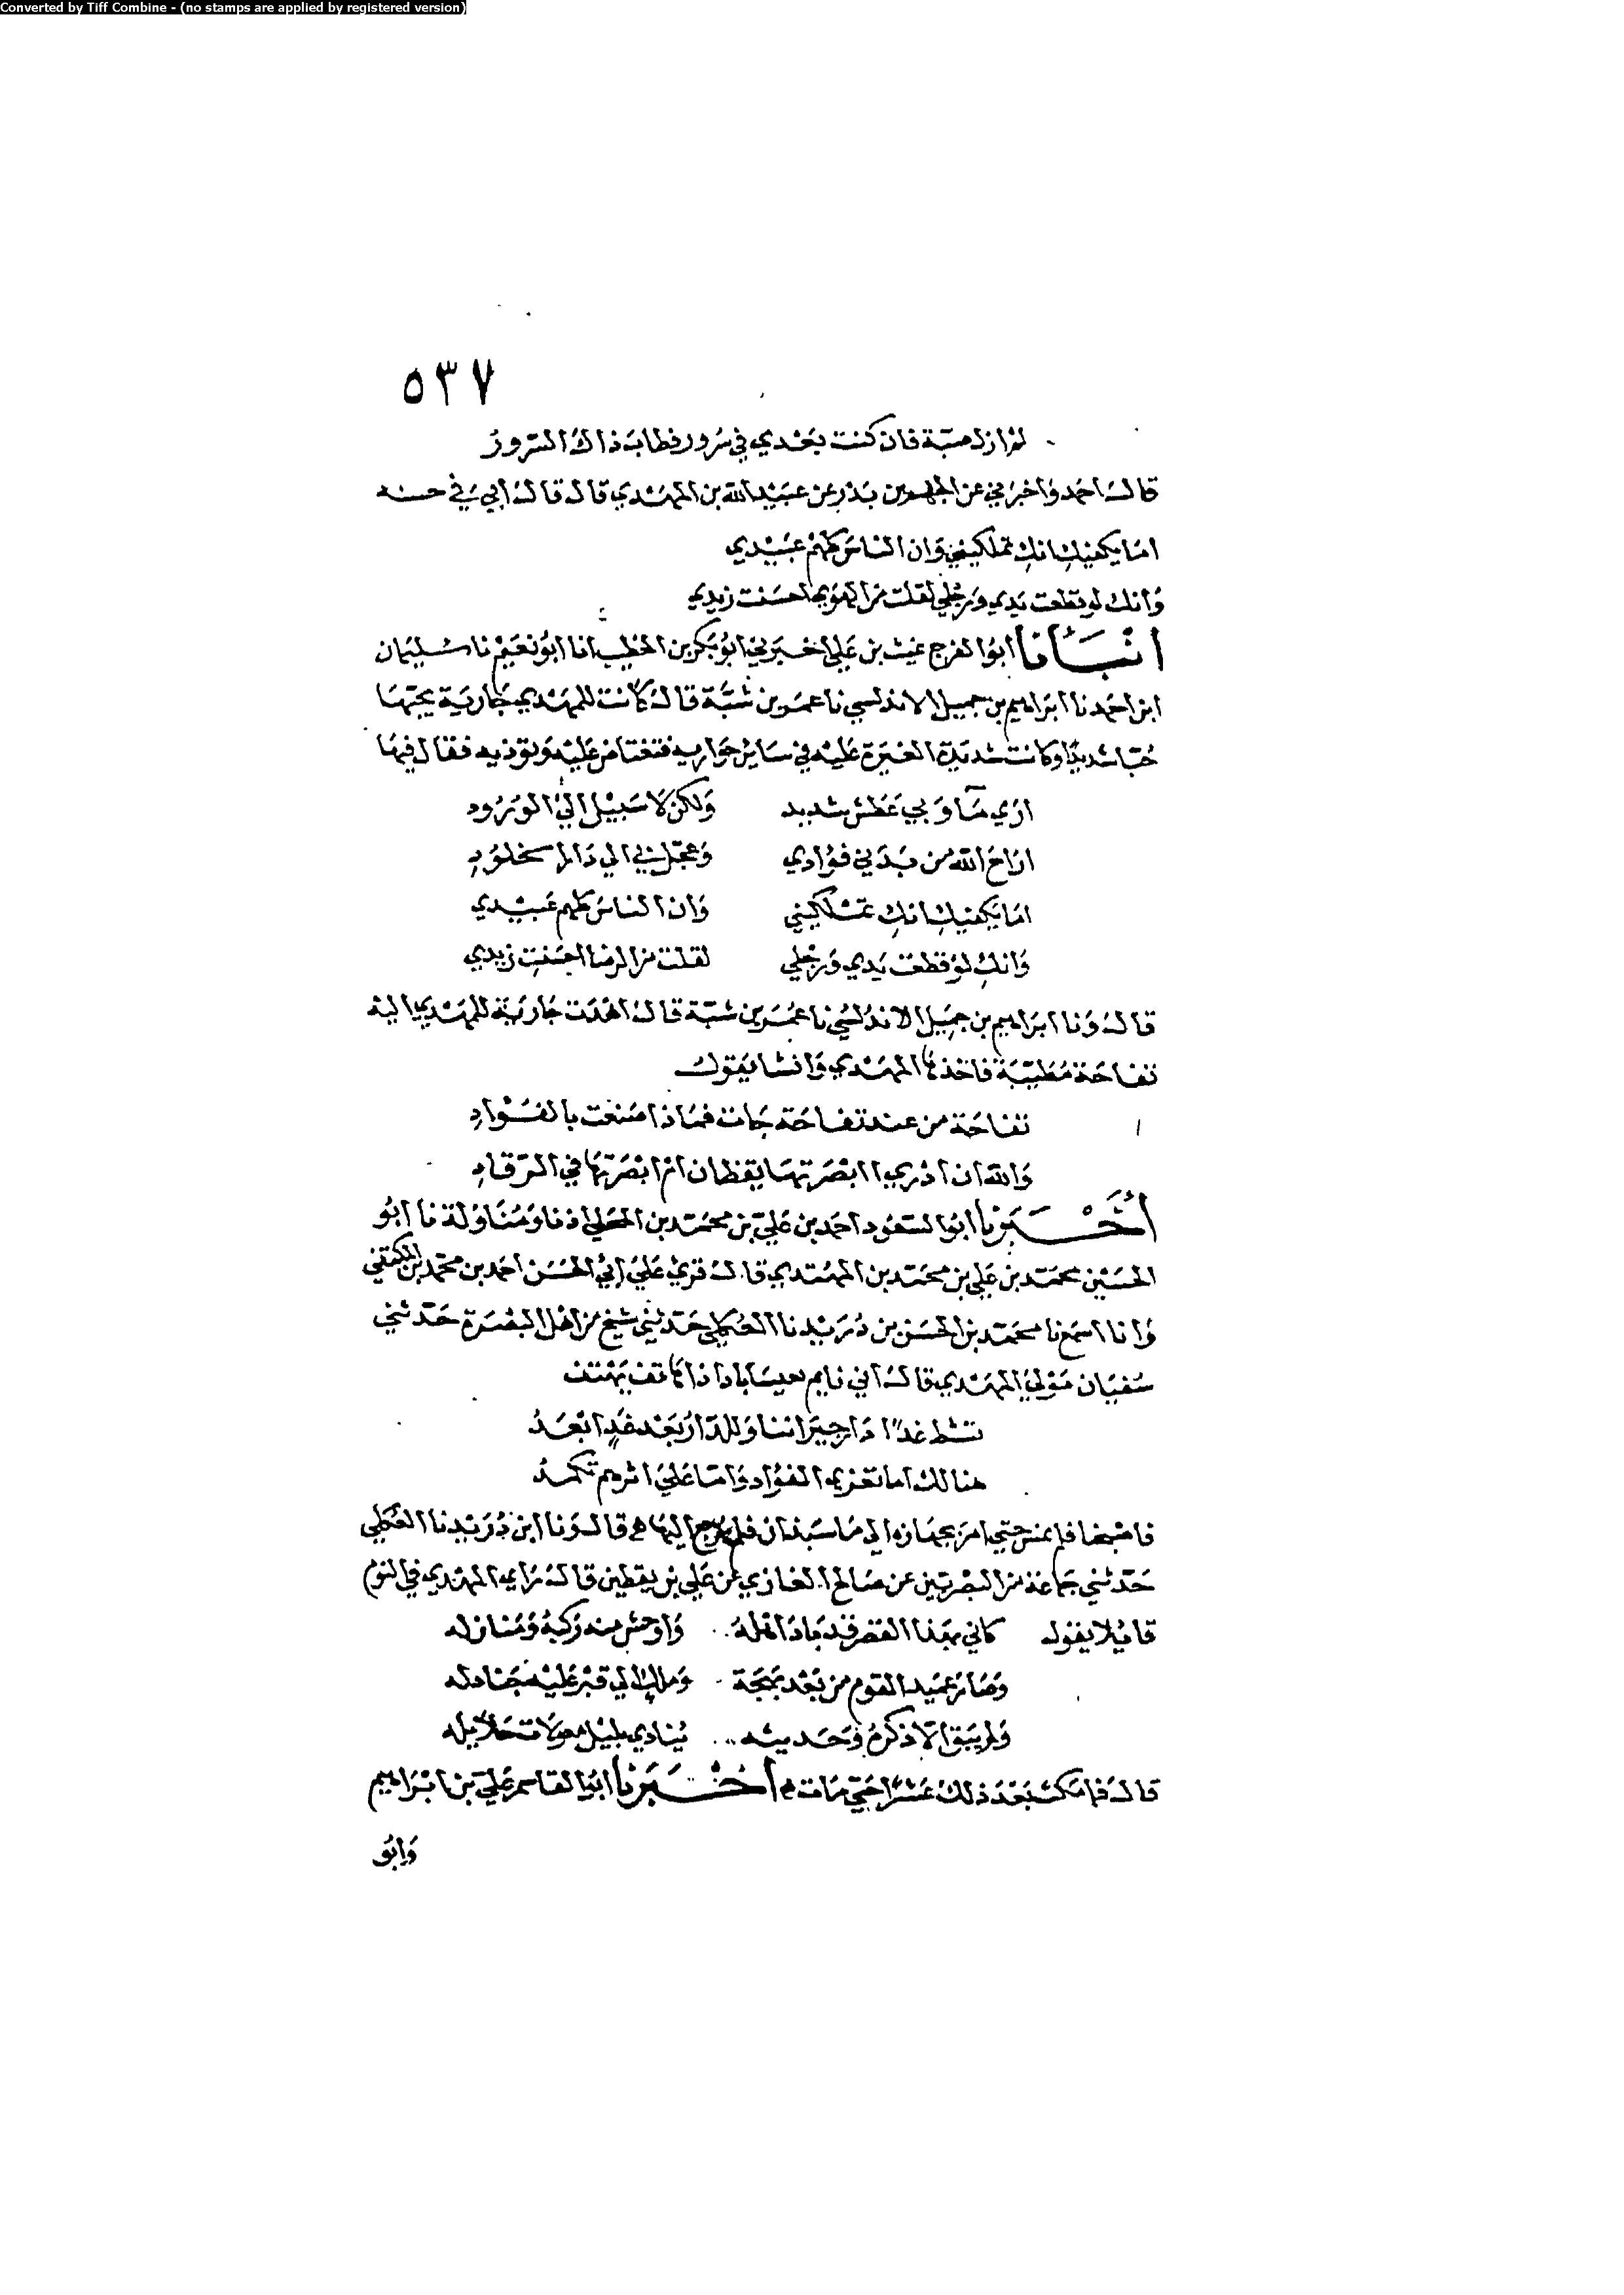 Converted by Tiff Combine - (no stamps are applied by registered version)
٥٣٧
لم ازل صبة فان كنت بعدي في سرور فطاب ذاك السرور
قال احمد واخبرني عن الجهم بن بدر عن عبيد الله بن المهدي قال قال ابي في حسنه
اما يكفيك انك تملكيني وان الناس كلهم عبيدي
وانك لو قطعت يدي ورجلي لقلت من الهوى احسنت زيدي
انبأنا ابو الفرج غيث بن علي اخبرني ابو بكر بن الخطيب انا ابو نعيم نا سليمان
ابن احمد نا ابراهيم بن جميل الاندلسي نا عمر بن شبة قال كانت للمهدي جارية يحبها
حبا شديدا وكانت شديدة الغيرة عليه في ساير جواريه فتغتاض عليه وتوذيه فقال فيها
اري مآ وبي عطش شديد ولكن لا سبيل الي الورود
اراح الله من بدني فؤادي وعجل بي الي دار الخلود
اما يكفيك انك تملكيني وان الناس كلهم عبيدي
وانك لو قطعت يدي ورجلي لقلت من الرضا احسنت زيدي
قال ونا ابراهيم بن جميل الاندلسي نا عمر بن شبة قال اهدت جارية للمهدي اليه
تفاحة مطيبة فاخذها المهدي وانشا يقول
تفاحة من عند تفاحة جات فماذا صنعت بالفواد
والله ان ادري اابصرتها يقظان ام ابصرتها في الرقاد
أخبرنا ابو السعود احمد بن علي بن محمد بن المجلي اذنا ومناولة نا ابو
الحسين محمد بن علي بن محمد بن المهتدي قال قري علي ابي الحسن احمد بن محمد بن المكتفي
وانا اسمع نا محمد بن الحسن بن دريد نا العكلي حدثني شيخ من اهل البصرة حدثني
سفيان مولي المهدي قال اني نايم بعيساباد اذا هاتف يهتف
تشط غدًا دار جيراننا وللدار بعد غدٍ ابعد
هنالك اما تعزي الفؤاد واما علي اثرهم تكمد
فاصبحنا فلم نمس حتي امر بجهازه الي ماسبذان فلم يرجع اليها ه قال ونا ابن دريد نا العكلي
حدثني جماعة من البصريين عن صالح الغازي عن علي بن يقطين قال راي المهدي في النوم
قايلا يقول كاني بهذا القصر قد باد اهله واوحش منه ركبه ومنازله
وصار عميد القوم من بعد بهجة وملك الي قبر عليه جنادله
ولم يبق الا ذكره وحديثه ينادي بليل معولات حلايله
قال فما مكث بعد ذلك عشرا حتي مات ه أخبرنا ابو القاسم علي بن ابراهيم
وابو